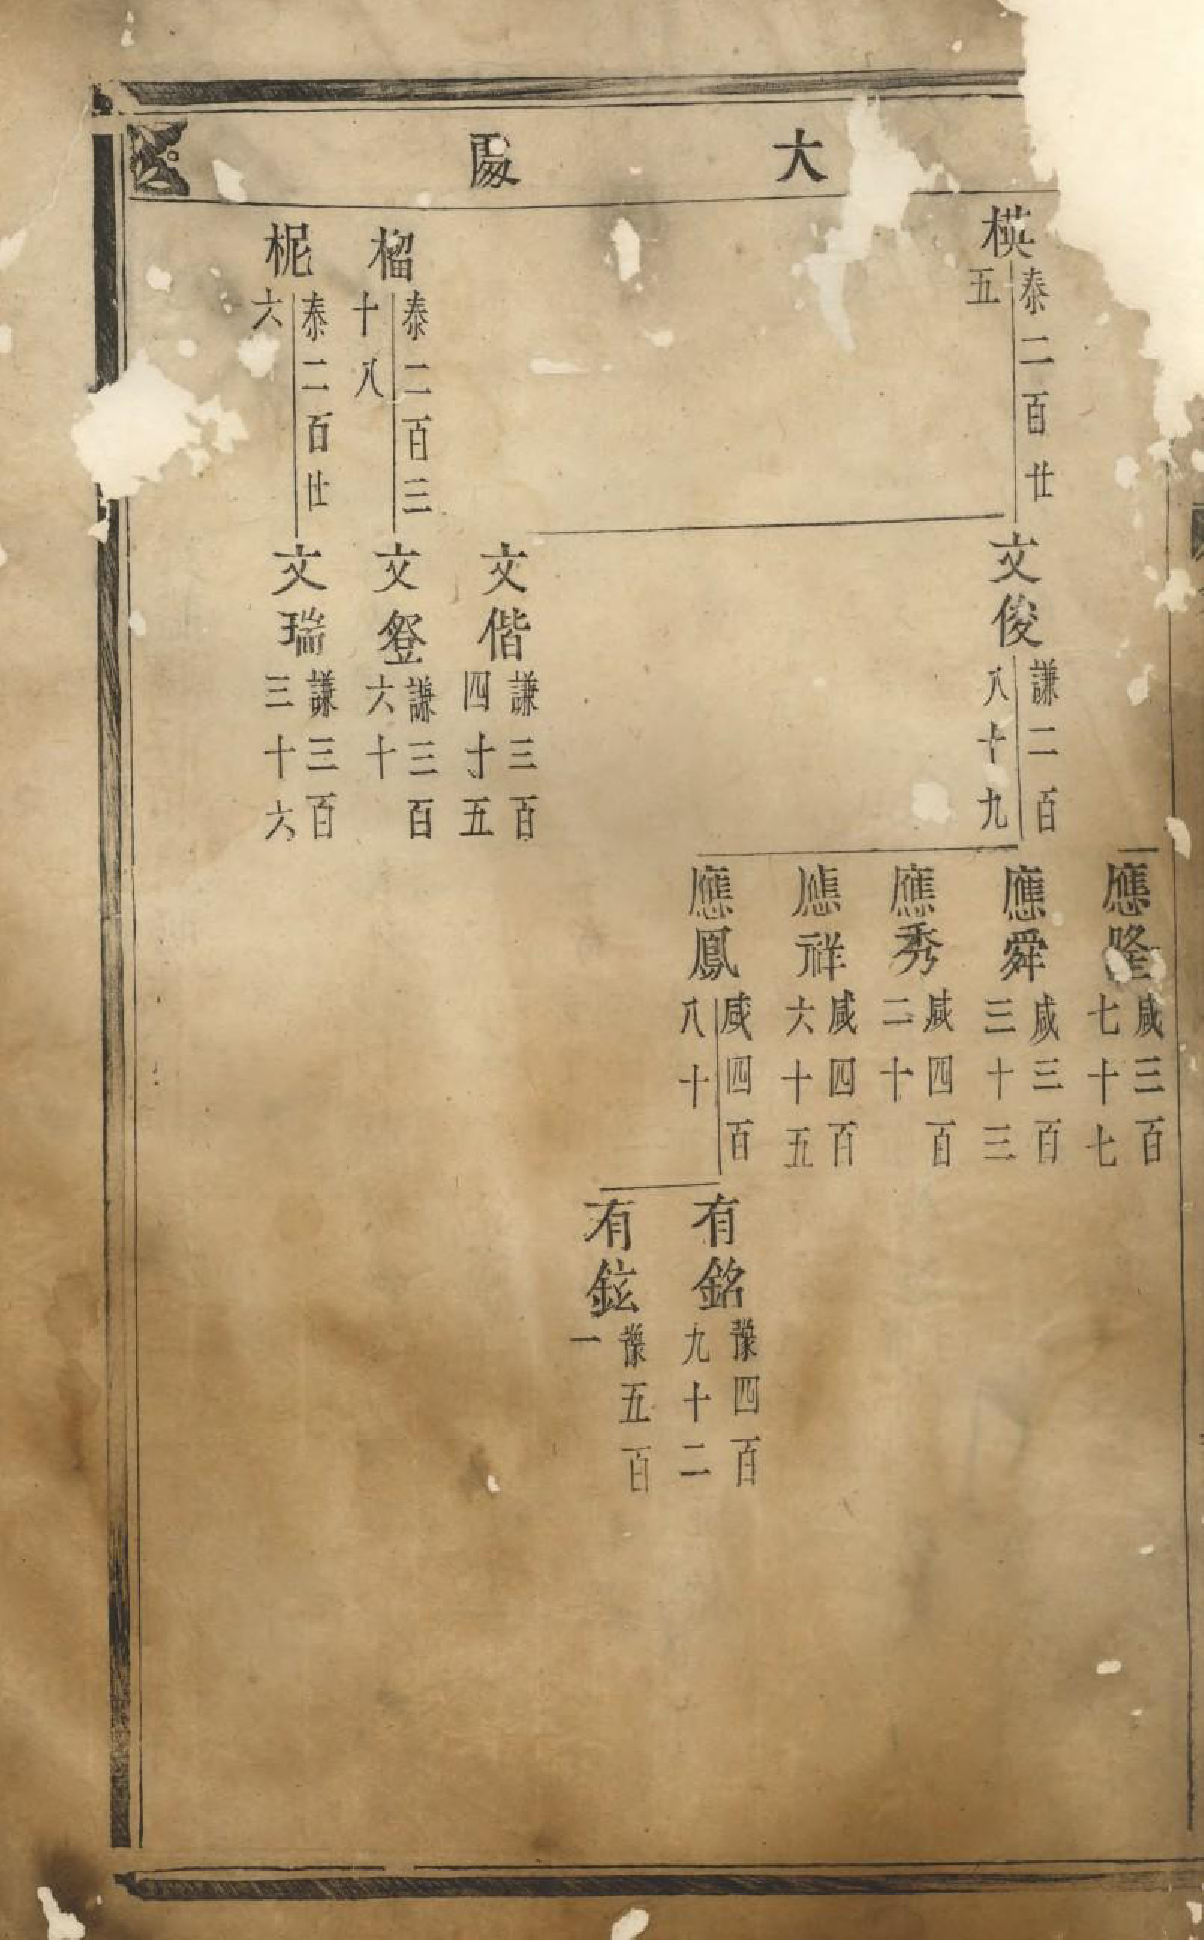 大
楧 泰二百廿五
文俊 謙二百八十九
應隆 咸三百七十七
應舜 咸三百三十三
應秀 咸四百二十
應祥 咸四百六十五
應鳳 咸四百八十
有銘 豫四百九十二
有鉉 豫五百一
文偕 謙三百四十五
榴 泰二百三十八
文登 謙三百六十
柅 泰二百廿六
文瑞 謙三百三十六